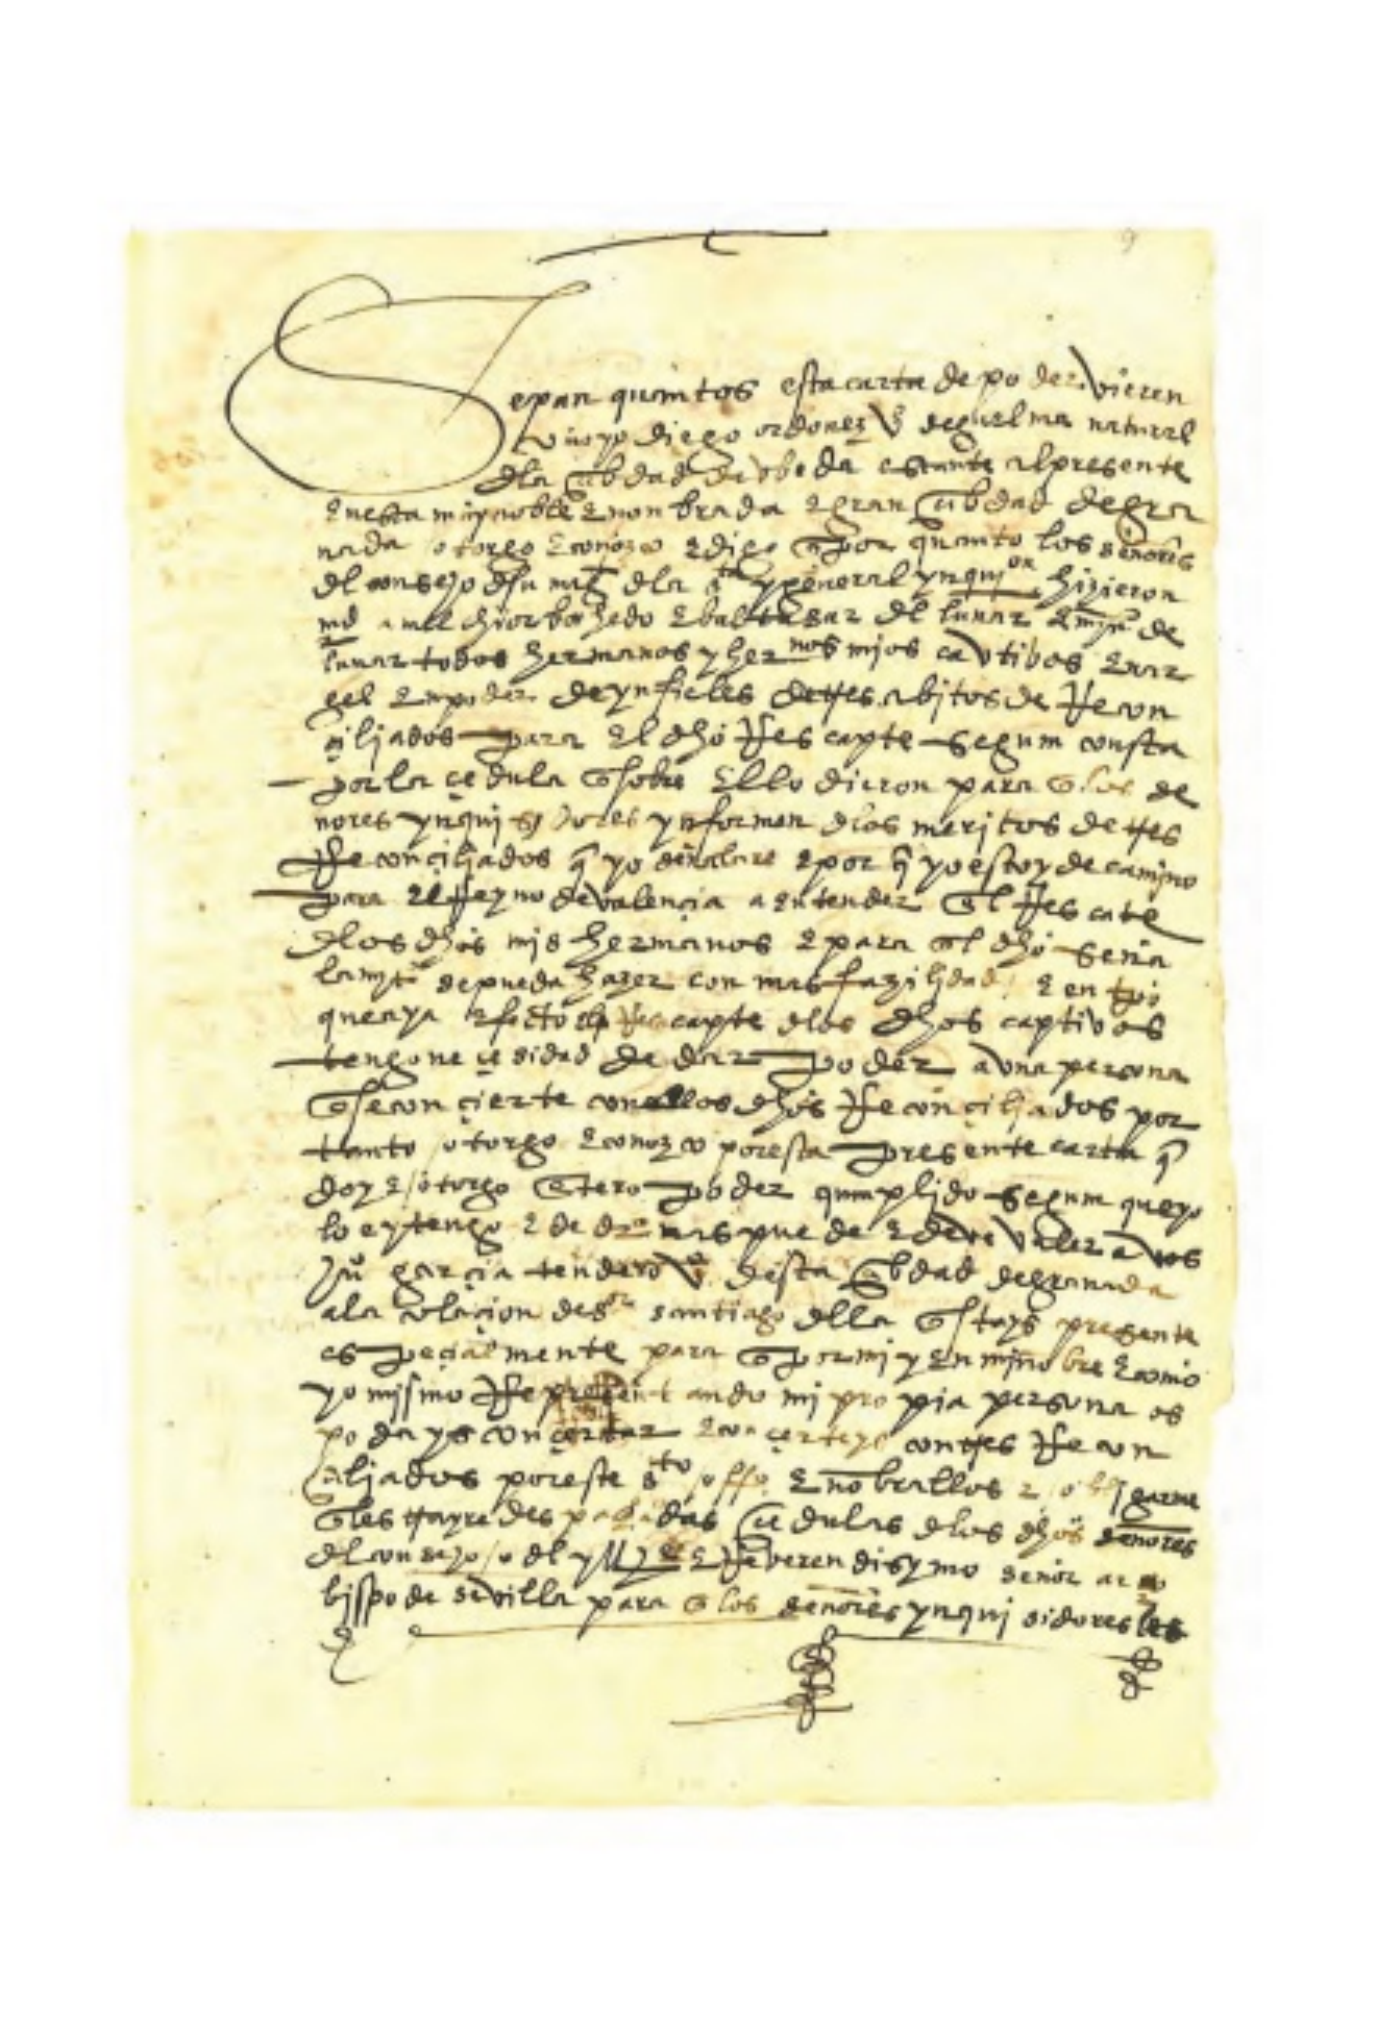 9
Sepan quantos esta carta de poder vieren
como yo diego ordonez vº deguelma natural
dla cibdad de vbeda estante al presente
enesta muy noble e nonbrada e gran cibdad de gra
nada otorgo e conozco e digo q por quanto los señores
del consejo d su magt dla sta y general ynquion hizieron
md a melchior bohedo e baltasar del lunar e myn de
lunar todos hermanos y hernos mjos cavtibos en ar
gel en poder de ynfieles de tres abitos de Recon
ciljados para el dho Rescapte segun consta
por la cedula q sobre ello dieron para q los se
nores ynquisidores ynformen dlos meritos de tres
Reconciljados q yo señalare e por q yo estoy de camjno
para el Reyno de valencia a entender en el Rescate
dlos dhos mis hermanos e para q el dho seña
lamjto se pueda hazer con mas fazilidad e en tpo
que aya efecto el Rescapte dlos dhos captivos
tengo necesidad de dar poder a vna persona
q se concierte con los dhos Reconciljados por
tanto otorgo e conozco por esta presente carta q
doy e otorgo entero poder cunplido segun que yo
lo e y tengo e de dro mas puede e deve valer a vos
Juº garcia tendero vº desta cibdad de granada
ala colacion de sor santiago della q estays presente
especialmente para q por mj y en mj nobre e como
yo mjsmo Representando mj propia persona os
podays concertar e concerteys con tres Recon
ciljados por este sto offº e nobrallos e obljgarme
q les trayre despachadas cedulas dlos dhos señores
del consejo o del yllmo e Reverendisymo señor arço
bjspo de sevilla para q los señores ynquisidores les